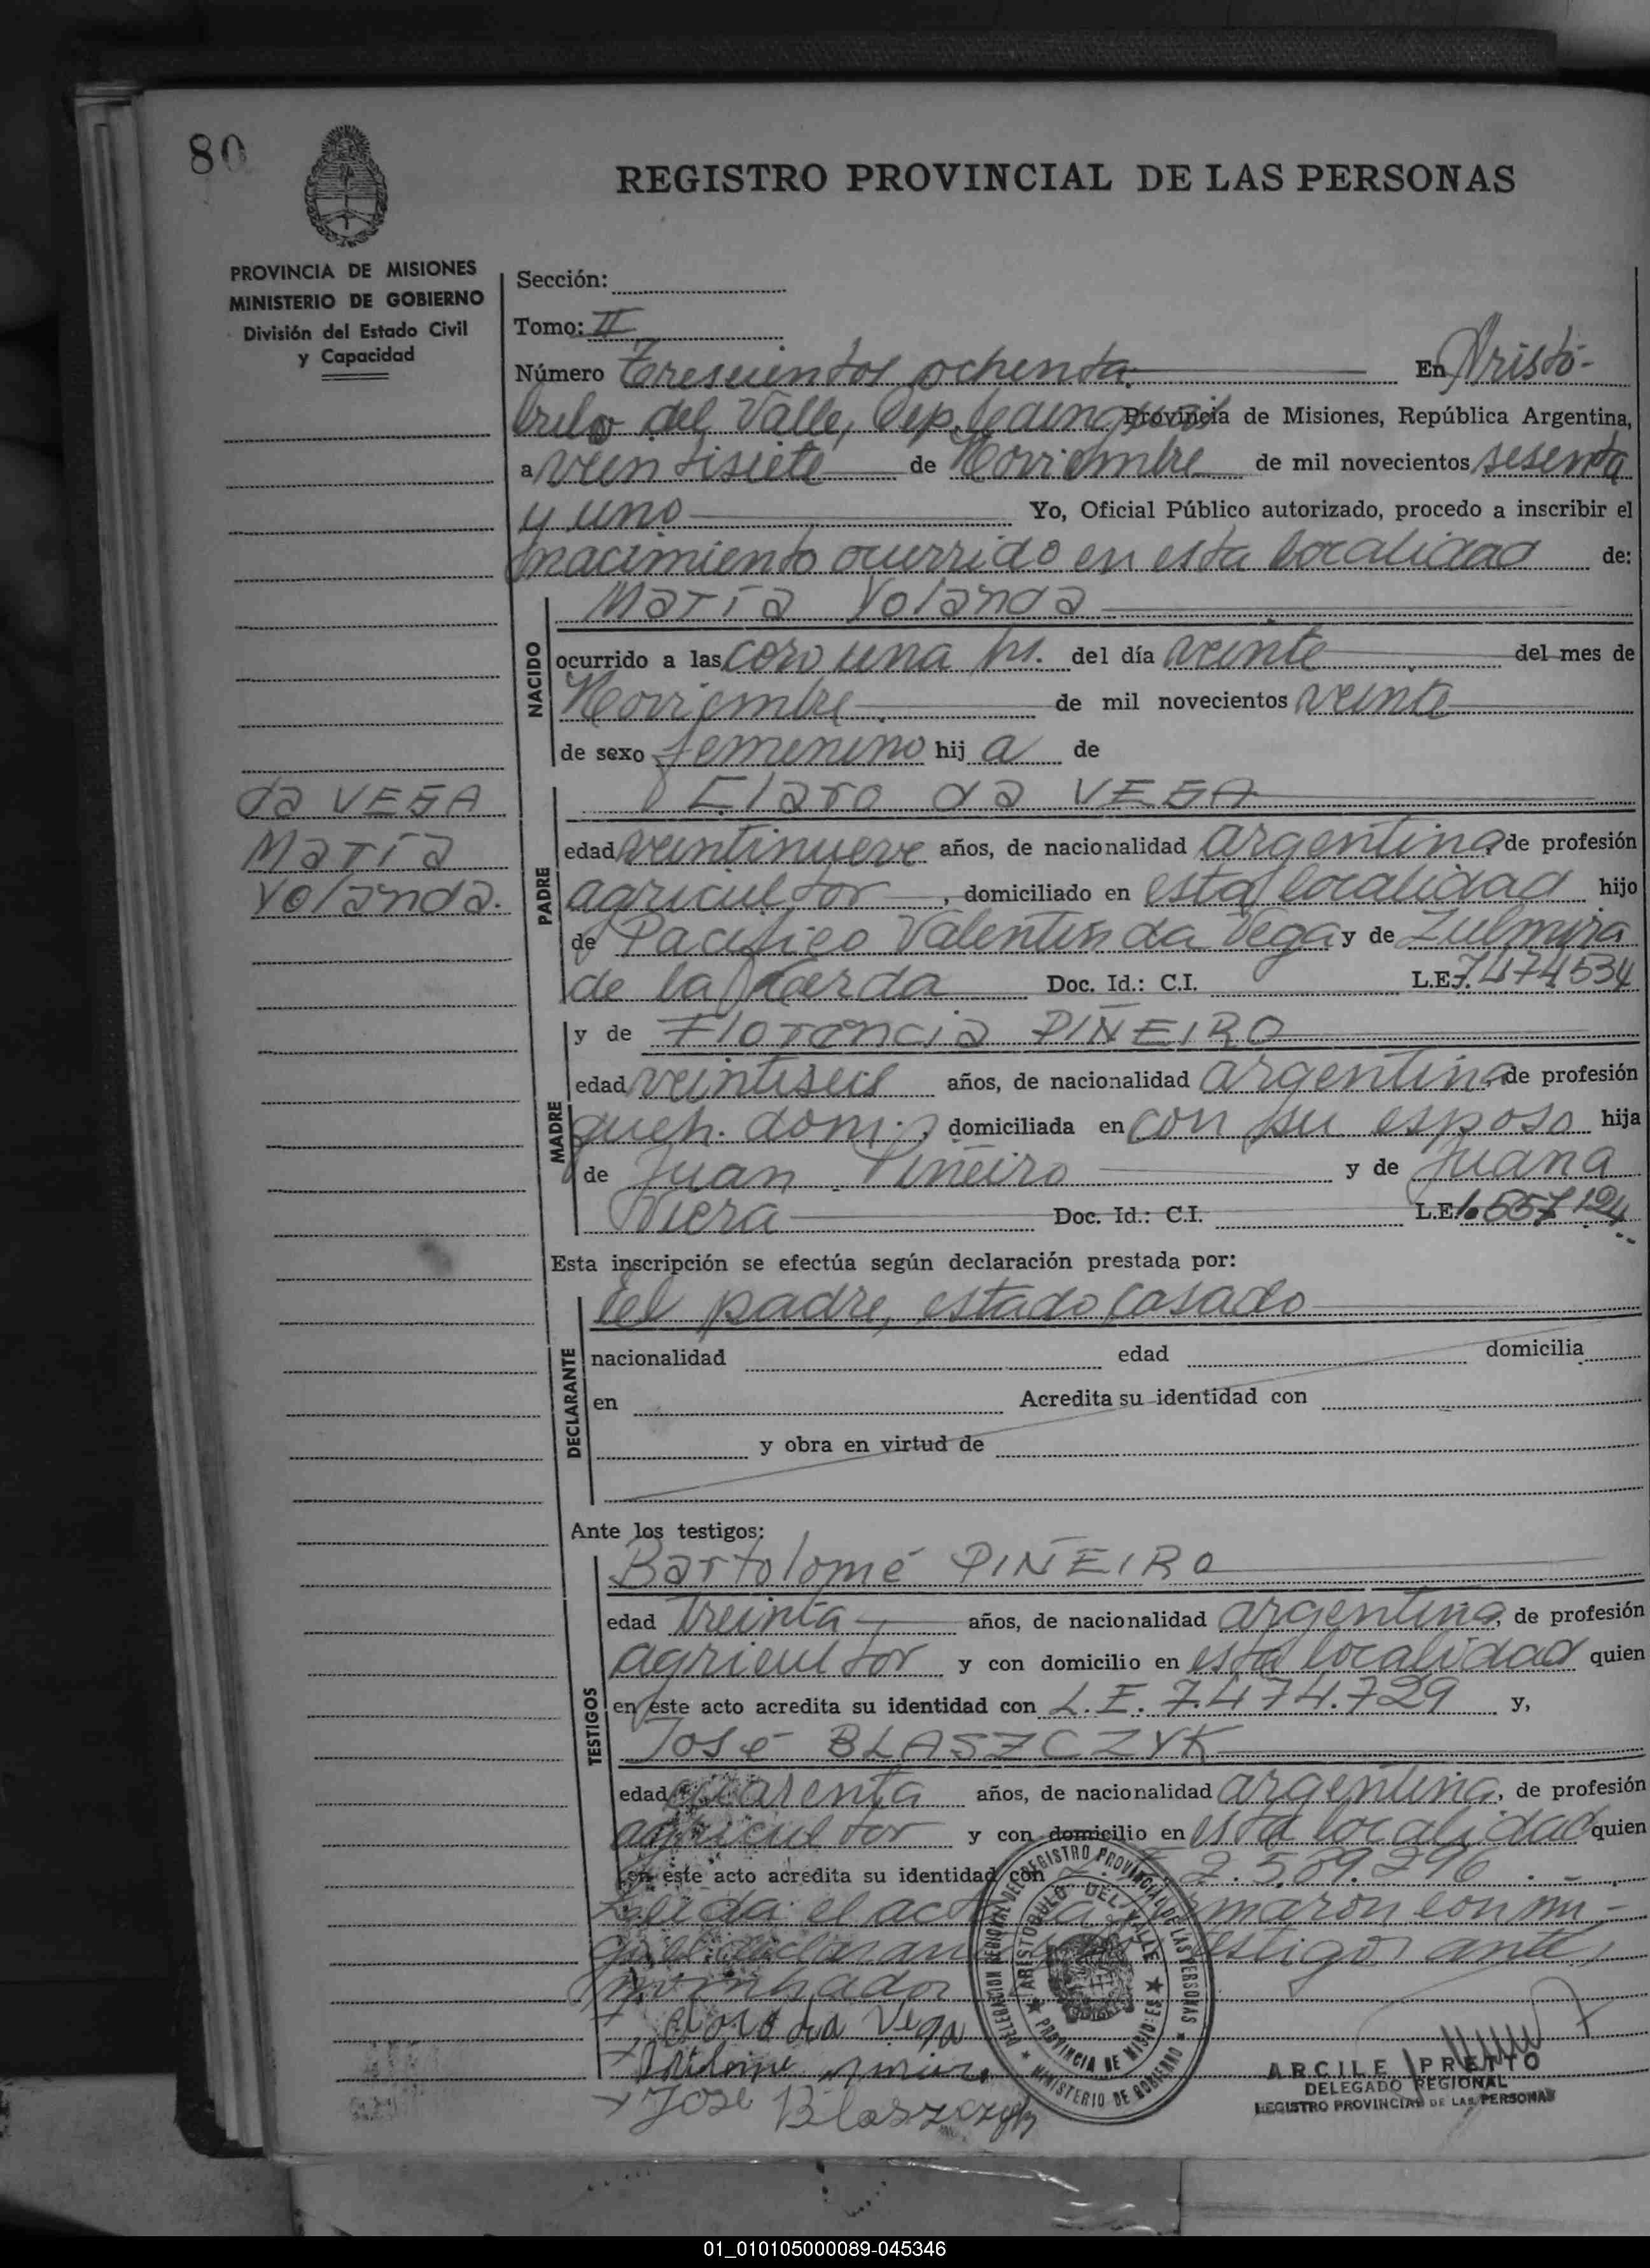 80
REGISTRO PROVINCIAL DE LAS PERSONAS
PROVINCIA DE MISIONES
MINISTERIO DE GOBIERNO
División del Estado Civil
y Capacidad
Sección:
Tomo: II
Número Trescientos ochenta. En Aristó-
bulo del Valle, Dep. Cainguás Provincia de Misiones, República Argentina,
a veintisiete de Noviembre de mil novecientos sesenta
y uno Yo, Oficial Público autorizado, procedo a inscribir el
nacimiento ocurrido en esta localidad de:
NACIDO
María Yolanda
ocurrido a las cero una hs. del día veinte del mes de
Noviembre de mil novecientos veinte
de sexo femenino hij a de
da VEGA
María
Yolanda.
PADRE
Claro da VEGA
edad veintinueve años, de nacionalidad argentina de profesión
agricultor, domiciliado en esta localidad hijo
de Pacífico Valentín da Vega y de Zulmira
de la Cerda Doc. Id.: C.I. L.E. 7.474534
MADRE
y de Florencia PIÑEIRO
edad veintiseis años, de nacionalidad argentina de profesión
queh. dom., domiciliada en con su esposo hija
de Juan Piñeiro y de Juana
Viera Doc. Id.: C.I. L.E. 1.557124
Esta inscripción se efectúa según declaración prestada por:
DECLARANTE
el padre, estado casado
nacionalidad edad domicilia
en Acredita su identidad con
y obra en virtud de
Ante los testigos:
TESTIGOS
Bartolomé PIÑEIRO
edad treinta años, de nacionalidad argentina, de profesión
agricultor y con domicilio en esta localidad quien
en este acto acredita su identidad con L.E. 7.474.729 y,
José BLASZCZYK
edad cuarenta años, de nacionalidad argentina, de profesión
agricultor y con domicilio en esta localidad quien
en este acto acredita su identidad con 2.589.296
Leida el acta la firmaron conmi-
go el declarante y testigos ante
Claro da Vega
José Blaszczyk
DELEGACION REGIONAL DEL REGISTRO PROVINCIAL DE LAS PERSONAS
ARISTOBULO DEL VALLE
PROVINCIA DE MISIONES
MINISTERIO DE GOBIERNO
ARCILE PRETTO
DELEGADO REGIONAL
REGISTRO PROVINCIAL DE LAS PERSONAS
01_010105000089-045346